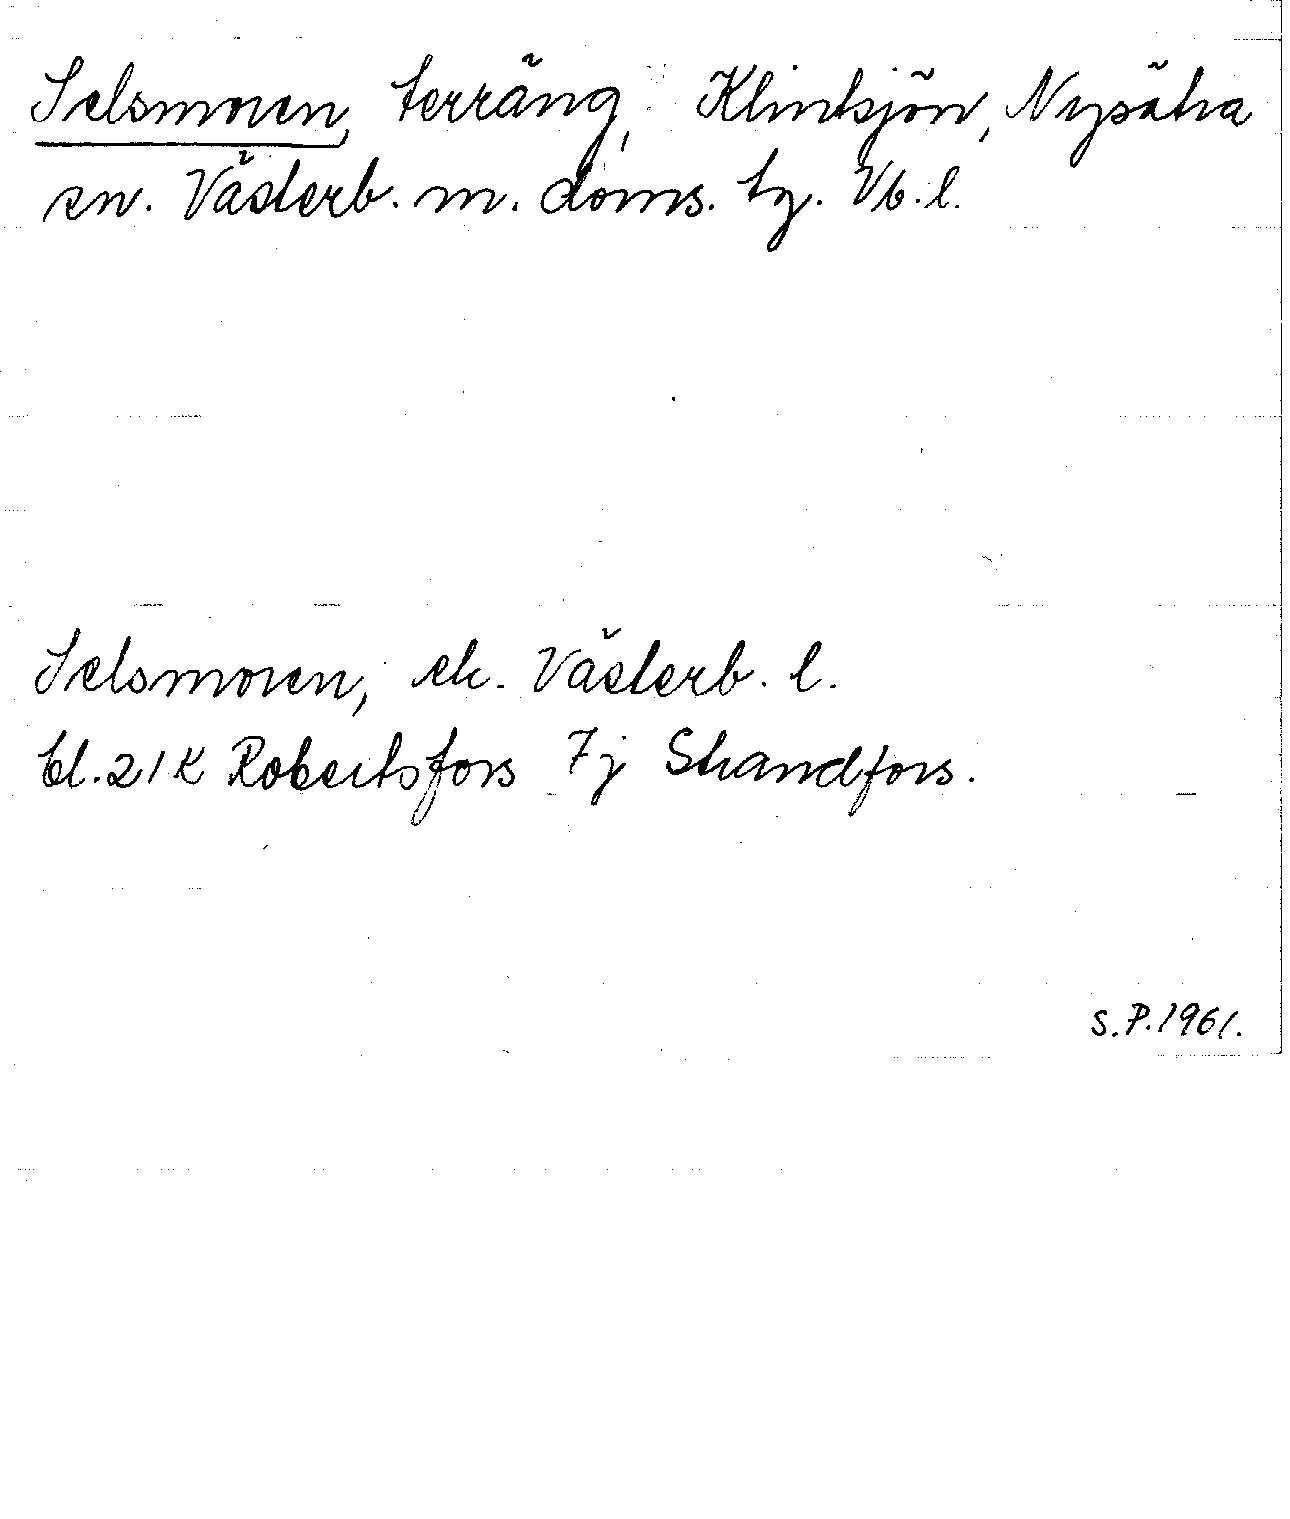 Selsmoren, terräng, Klintsjön, Nysätra
sn. Västerb. m. doms. tg. Vb.l.
Selsmoren, ek. Västerb. l.
bl. 21K Robertsfors 7j Strandfors.
S.P. 1961.